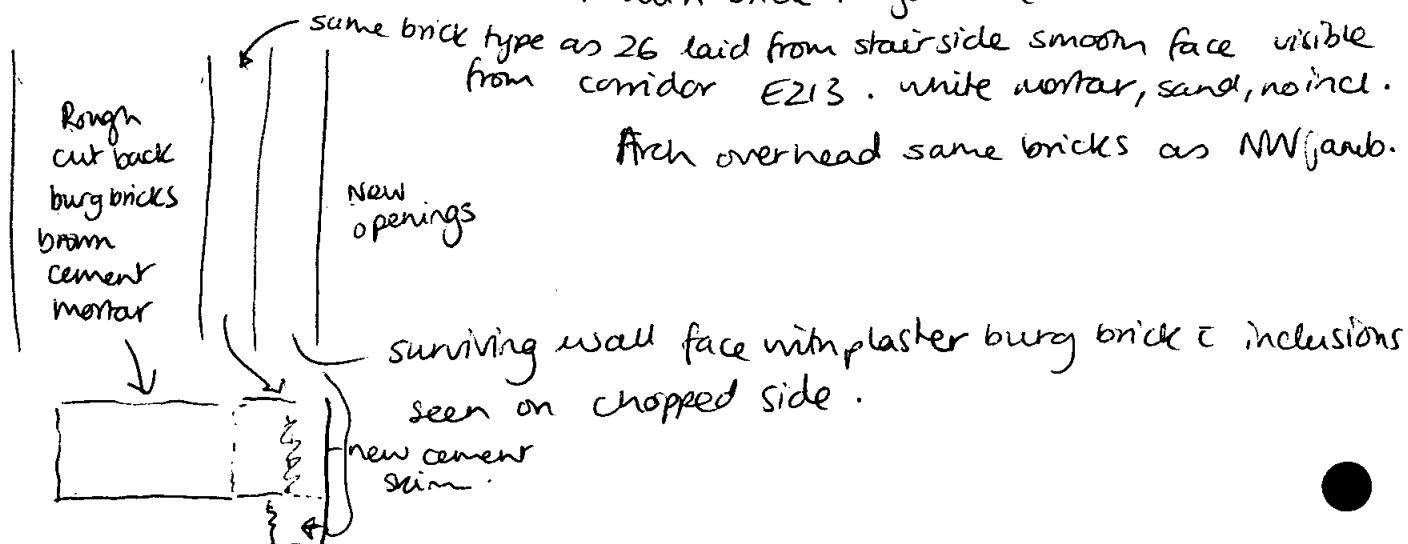 same brick type as 26 laid from stairside smooth face visible
from corridor E213. white mortar, sand, no incl.
Arch overhead same bricks as NW jamb.
Rough
cut back
burg bricks
brown
cement
mortar
New
openings
surviving wall face with plaster burg brick c̄ inclusions
seen on chopped side.
new cement
skim.